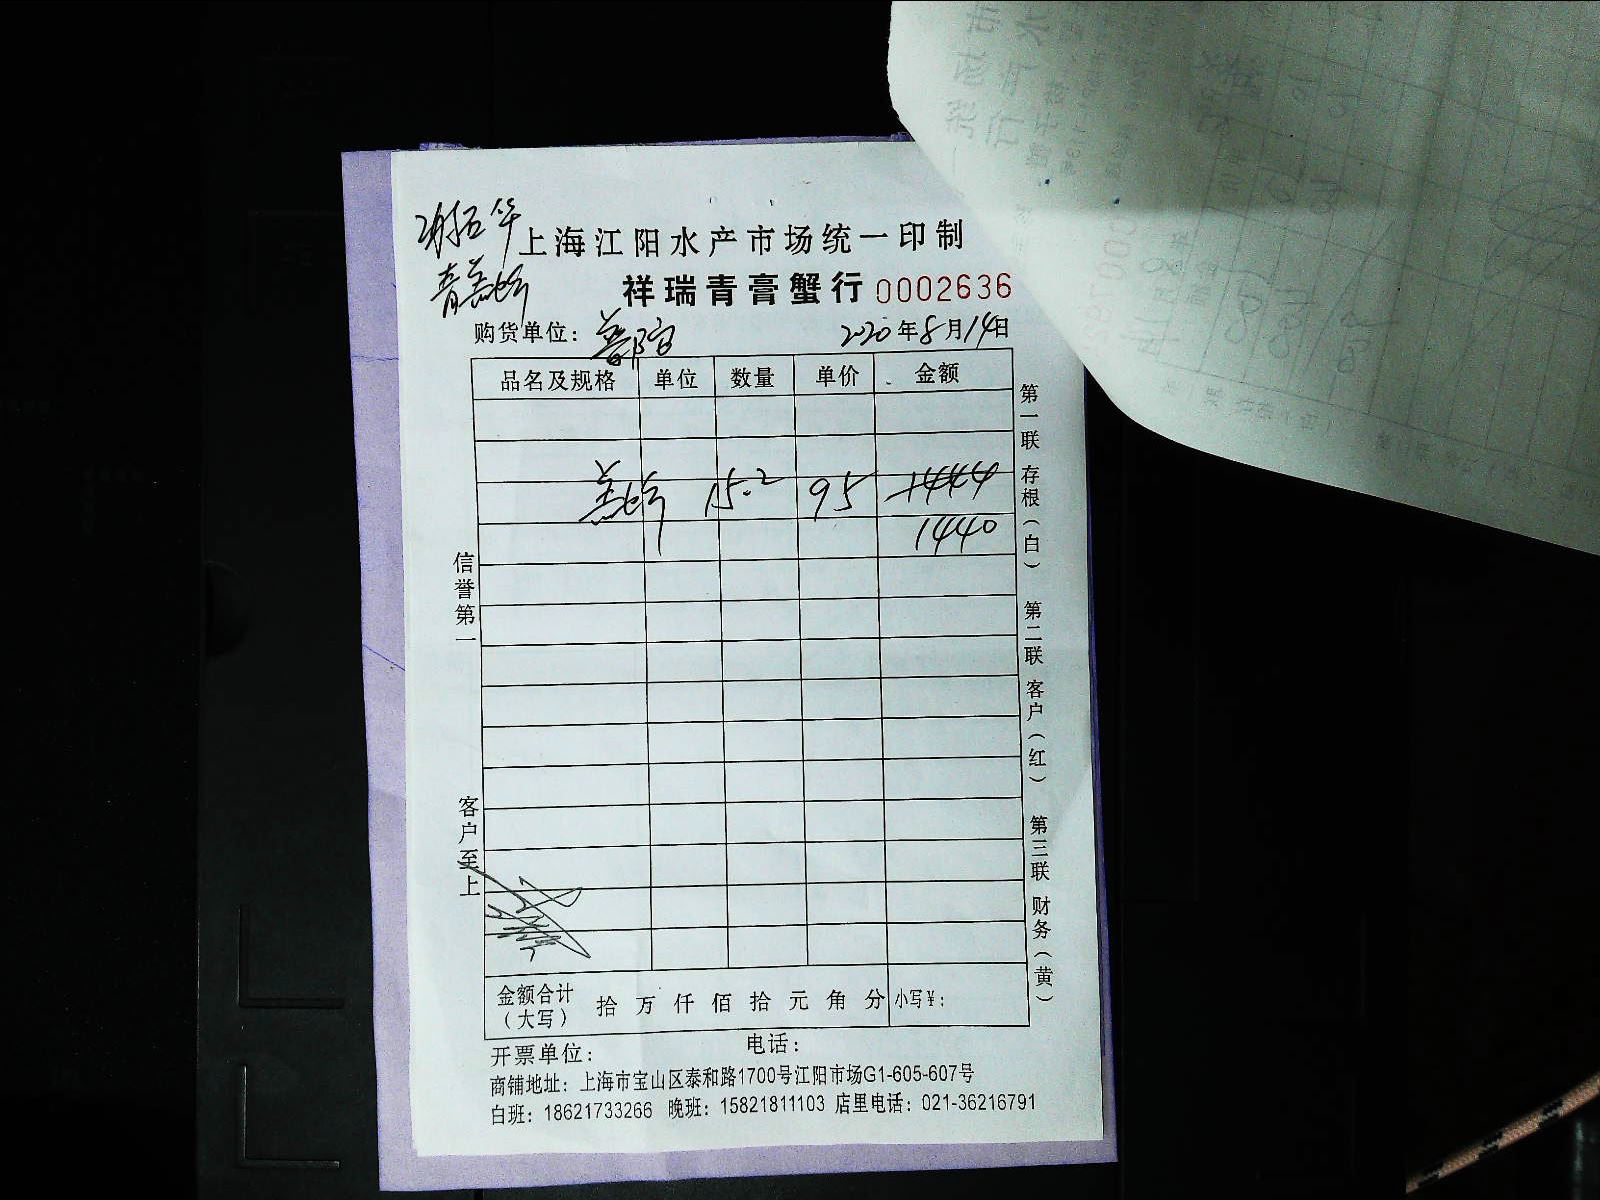 上海江阳水产市场统一印制
祥瑞青膏蟹行 0002636
购货单位:
2020年8月14日
品名及规格 单位 数量 单价 金额
15.2 95 1444
1440
信誉第一
客户至上
第一联 存根（白） 第二联 客户（红） 第三联 财务（黄）
金额合计（大写） 拾 万 仟 佰 拾 元 角 分 小写￥:
开票单位: 电话:
商铺地址: 上海市宝山区泰和路1700号江阳市场G1-605-607号
白班: 18621733266 晚班: 15821811103 店里电话: 021-36216791